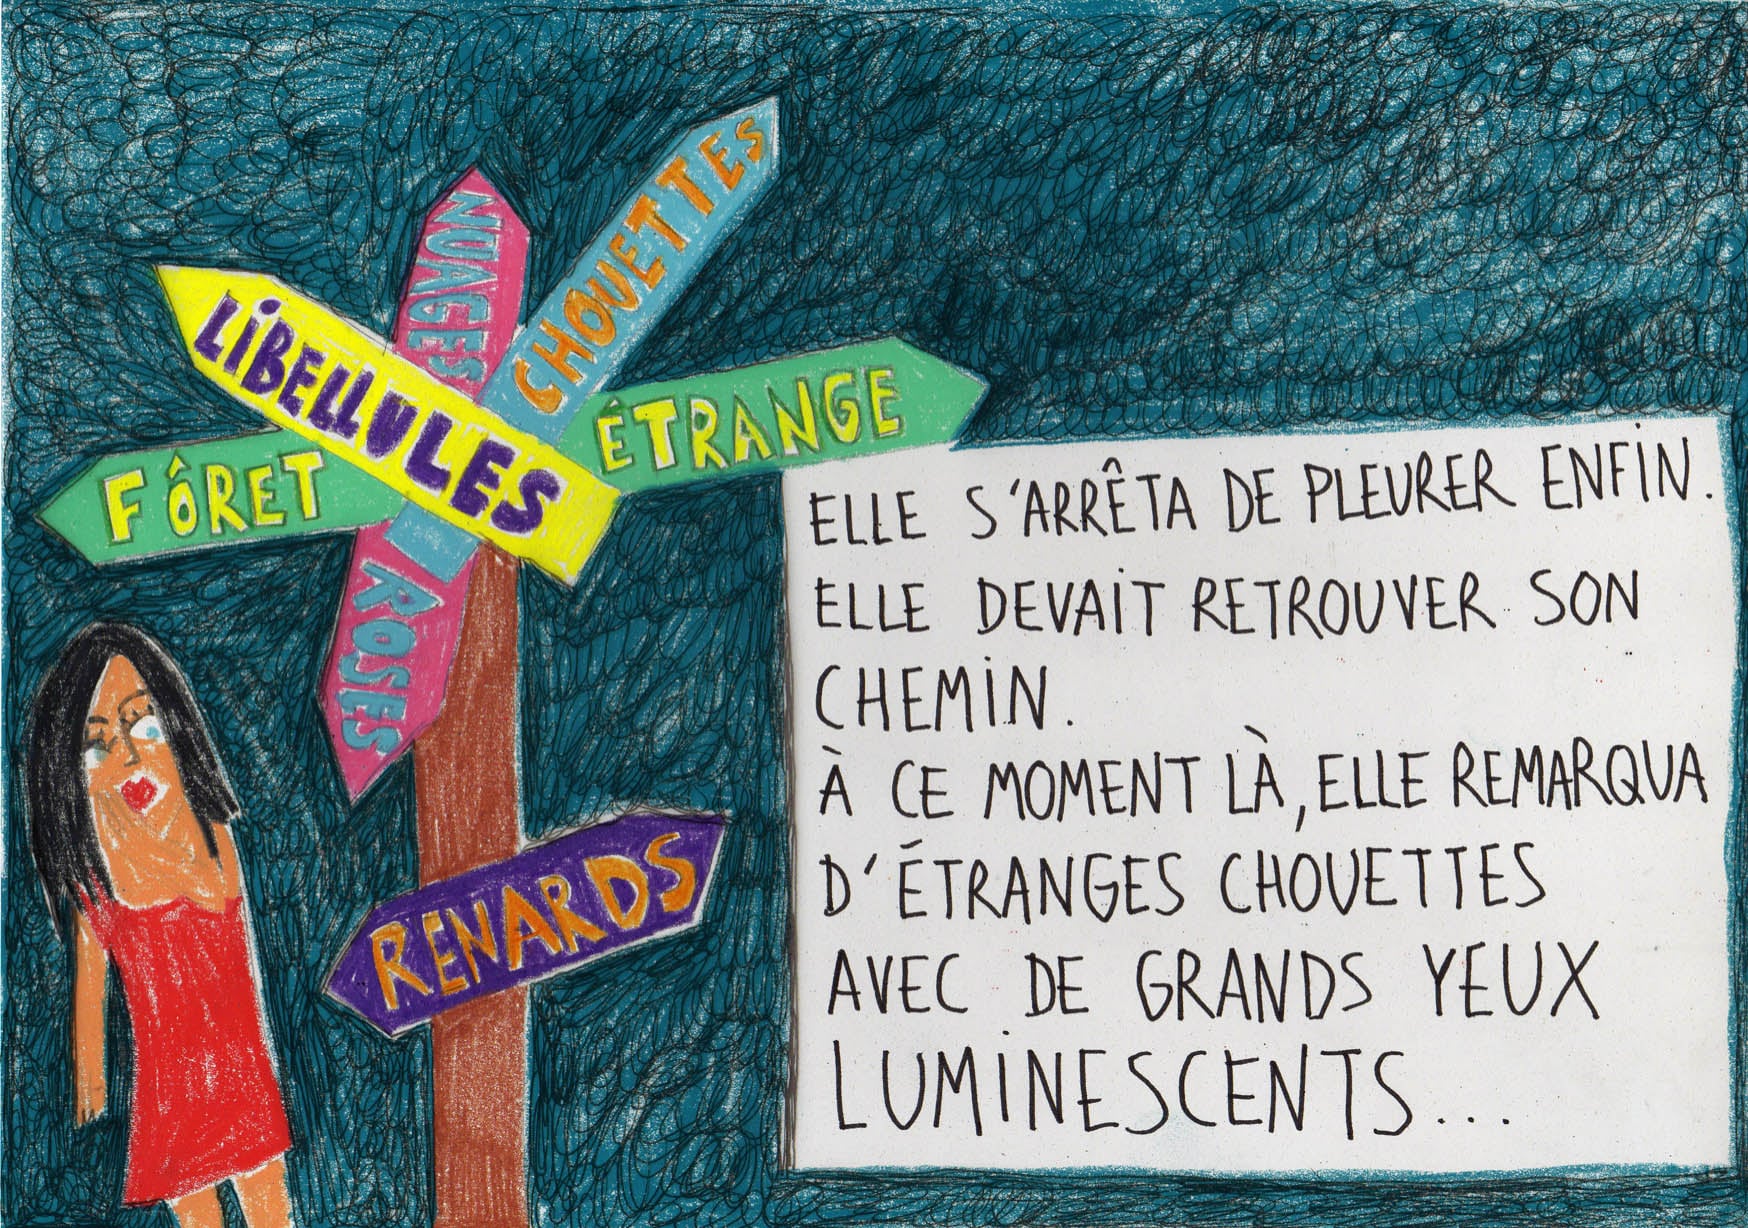 NUAGES
ROSES
CHOUETTES
LIBELLULES
FÔRET
ÉTRANGE
RENARDS
ELLE S'ARRÊTA DE PLEURER ENFIN.
ELLE DEVAIT RETROUVER SON
CHEMIN.
À CE MOMENT LÀ, ELLE REMARQUA
D'ÉTRANGES CHOUETTES
AVEC DE GRANDS YEUX
LUMINESCENTS...